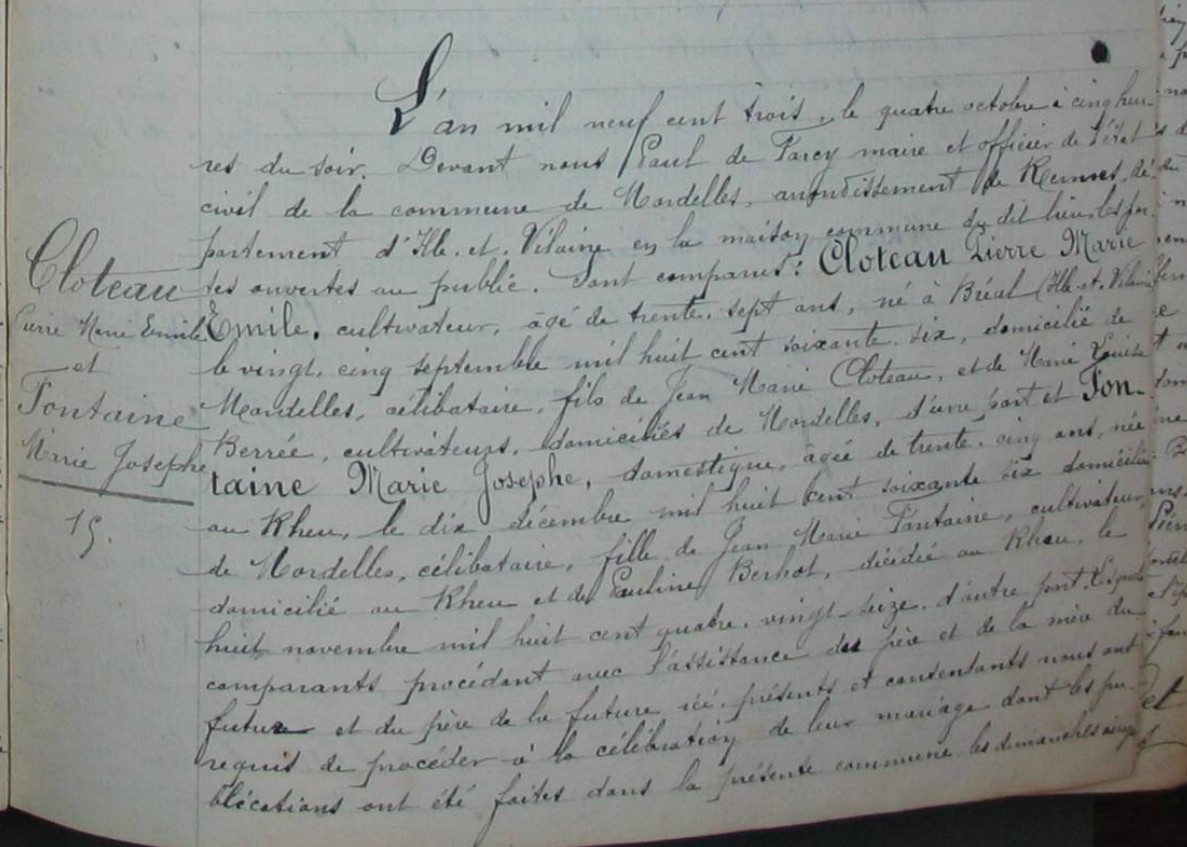 L'an mil neuf cent trois, le quatre octobre à cinq heu-
res du soir. Devant nous Paul de Farcy maire et officier de l'état
civil de la commune de Mordelles, arrondissement de Rennes, dé-
partement d'Ille-et-Vilaine en la maison commune du dit lieu, les por-
tes ouvertes au public. Sont comparus: Cloteau Pierre Marie
Emile, cultivateur, âgé de trente-sept ans, né à Bréal (Ille-et-Vilaine
le vingt-cinq septembre mil huit cent soixante-six, domicilié de
Mordelles, célibataire, fils de Jean Marie Cloteau, et de Marie Louise
Berrée, cultivateurs, domiciliés de Mordelles, d'une part et Fon-
taine Marie Josephe, domestique, âgée de trente-cinq ans, née
au Rheu, le dix décembre mil huit cent soixante six domiciliée
de Mordelles, célibataire, fille de Jean Marie Fontaine, cultivateur
domicilié au Rheu et de Pauline Berhot, décédée au Rheu, le
huit novembre mil huit cent quatre-vingt-seize, d'autre part.
comparants procédant avec l'assistance des père et de la mère du
futur et du père de la future ici présents et consentants nous ont
requis de procéder à la célébration de leur mariage dont les pu-
blications ont été faites dans la présente commune les dimanches
Cloteau
Pierre Marie Emile
et
Fontaine
Marie Josephe
15.